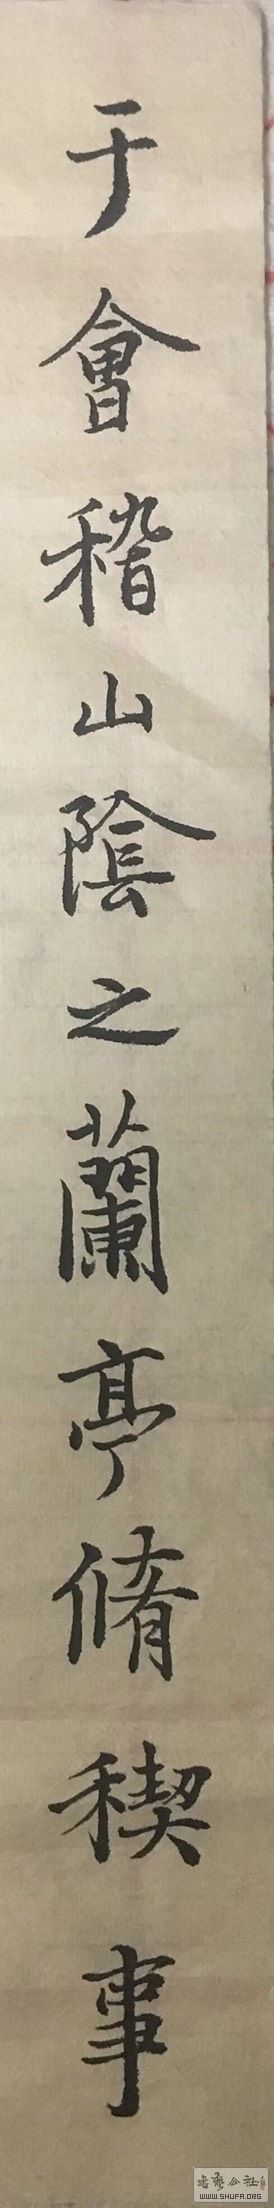 于會稽山陰之蘭亭脩稧事
書藝公社
WWW.SHUFA.ORG